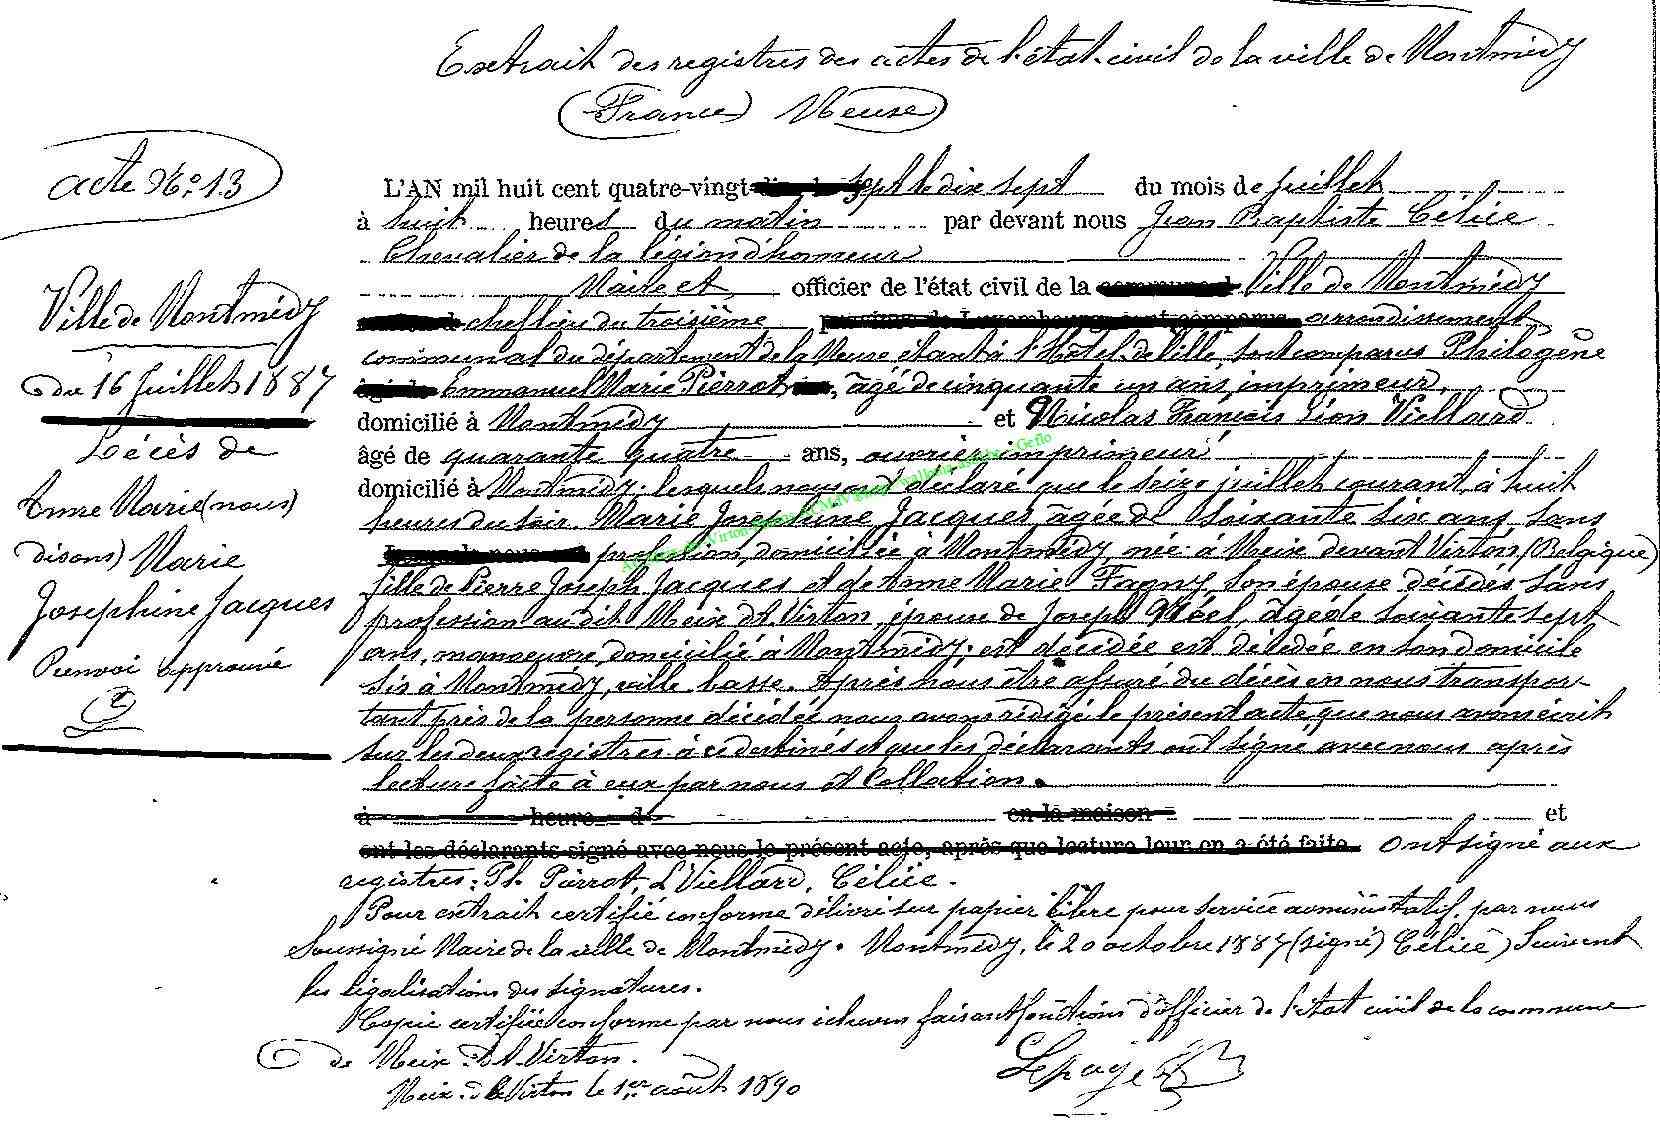 Extrait des registres des actes de l'état-civil de la ville de Montmédy
(France) Meuse)
acte No. 13
L'AN mil huit cent quatre-vingt sept le dix sept du mois de juillet
à huit heures du matin par devant nous Jean Baptiste Céliée
Chevalier de la légion d'honneur
Maire et officier de l'état civil de la commune d Ville de Montmédy
chef lieu du troisième province de Luxembourg, sont comparus arrondissement
communal du département de la Meuse étant à l'Hôtel-de-Ville, sont comparus Philogène
Emmanuel Marie Pierrot, âgé de cinquante un ans, imprimeur,
domicilié à Montmédy et Nicolas François Léon Viellard
âgé de quarante quatre ans, ouvrier imprimeur
domicilié à Montmédy; lesquels nous ont déclaré que le seize juillet courant, à huit
heures du soir, Marie Joséphine Jacques, âgée de soixante six ans, sans
profession, domiciliée à Montmédy, née à Meix devant Virton, (Belgique)
fille de Pierre Joseph Jacques et de Anne Marie Fagny, son épouse décédés sans
profession audit Meix dt Virton, épouse de Joseph Noël, âgé de soixante sept
ans, manoeuvre, domicilié à Montmédy; est décédée est décédée en son domicile
sis à Montmédy, ville basse. Après nous être assuré du décès en nous transpor-
tant près de la personne décédée nous avons rédigé le présent acte, que nous avons écrit
sur les deux registres à ce destinés et que les déclarants ont signé avec nous après
lecture faite à eux par nous et Collation.
à heure d en la maison et
ont les déclarants signé avec nous le présent acte, après que lecture leur en a été faite. Ont signé aux
registres: Ph. Pierrot, L Viellard, Céliée.
Pour extrait certifié conforme délivré sur papier libre pour service administratif, par nous
Soussigné Maire de la ville de Montmédy. Montmédy, le 20 octobre 1887 (signé) Céliée) Suivent
les légalisations des signatures.
Copie certifiée conforme par nous échevin faisant fonctions d'officier de l'état civil de la commune
de Meix-dt-Virton.
Meix-dt-Virton le 1er août 1890
Lepage
Ville de Montmédy
du 16 Juillet 1887
Décès de
Anne Marie (nous
disons) Marie
Joséphine Jacques
Renvoi approuvé